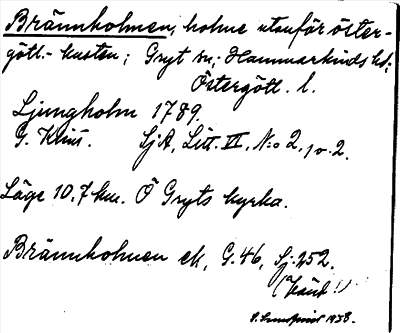 Brännholmen, holme utanför öster-
gött.- kusten; Gryt sn; Hammarkinds hd;
Östergött. l.
Ljungholm 1789.
G. Klint. SjA, Litt. II, N:o 2, 1 o. 2.
Läge 10,7 km. Ö Gryts kyrka.
Brännholmen ek, G. 46, Sj. 252.
1938.